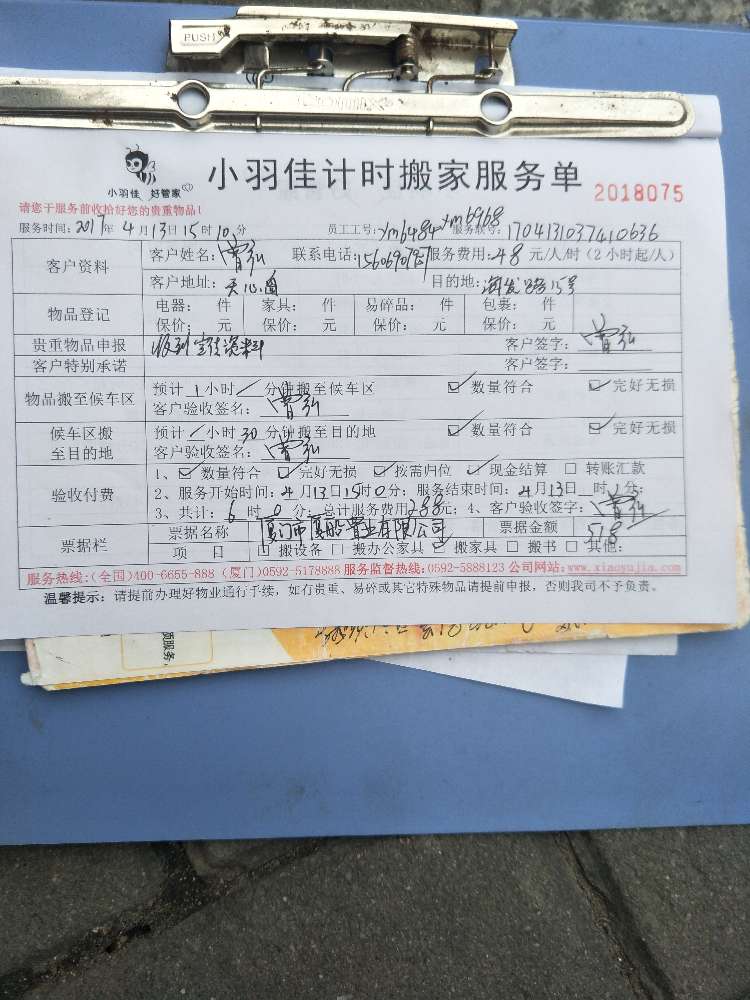 PUSH
小羽佳 好管家
小羽佳计时搬家服务单
2018075
请您于服务前收拾好您的贵重物品!
服务时间: 2017年 4月 13日 15时 10分 员工工号: xm6484 xm6968 服务联号: 1704131037410636
客户资料
客户姓名: 曾弘 联系电话: 服务费用: 48 元/人/时 (2小时起/人)
客户地址: 天心圆 目的地: 海发路15号
物品登记
电器: 件 家具: 件 易碎品: 件 包裹: 件
保价: 元 保价: 元 保价: 元 保价: 元
贵重物品申报 收到 资料 客户签字: 曾弘
客户特别承诺 客户签字:
物品搬至候车区
预计 1小时 / 分钟搬至候车区 ☑ 数量符合 ☑ 完好无损
客户验收签名: 曾弘
候车区搬至目的地
预计 / 小时 30 分钟搬至目的地 ☑ 数量符合 ☑ 完好无损
客户验收签名: 曾弘
验收付费
1、☑ 数量符合 ☑ 完好无损 ☑ 按需归位 ☑ 现金结算 □ 转账汇款
2、服务开始时间: 4月13日15时0分; 服务结束时间: 4月13日 时 分;
3、共计: 6 时 0 分; 总计服务费用288元; 4、客户验收签字: 曾弘
票据栏
票据名称 厦门市厦船置业有限公司 票据金额 518
项 目 □ 搬设备 □ 搬办公家具 ☑ 搬家具 □ 搬书 □ 其他:
服务热线:(全国)400-6655-888 (厦门)0592-5178888 服务监督热线:0592-5888123 公司网站:www.xiaoyujia.com
温馨提示: 请提前办理好物业通行手续, 如有贵重、易碎或其它特殊物品请提前申报, 否则我司不予负责。